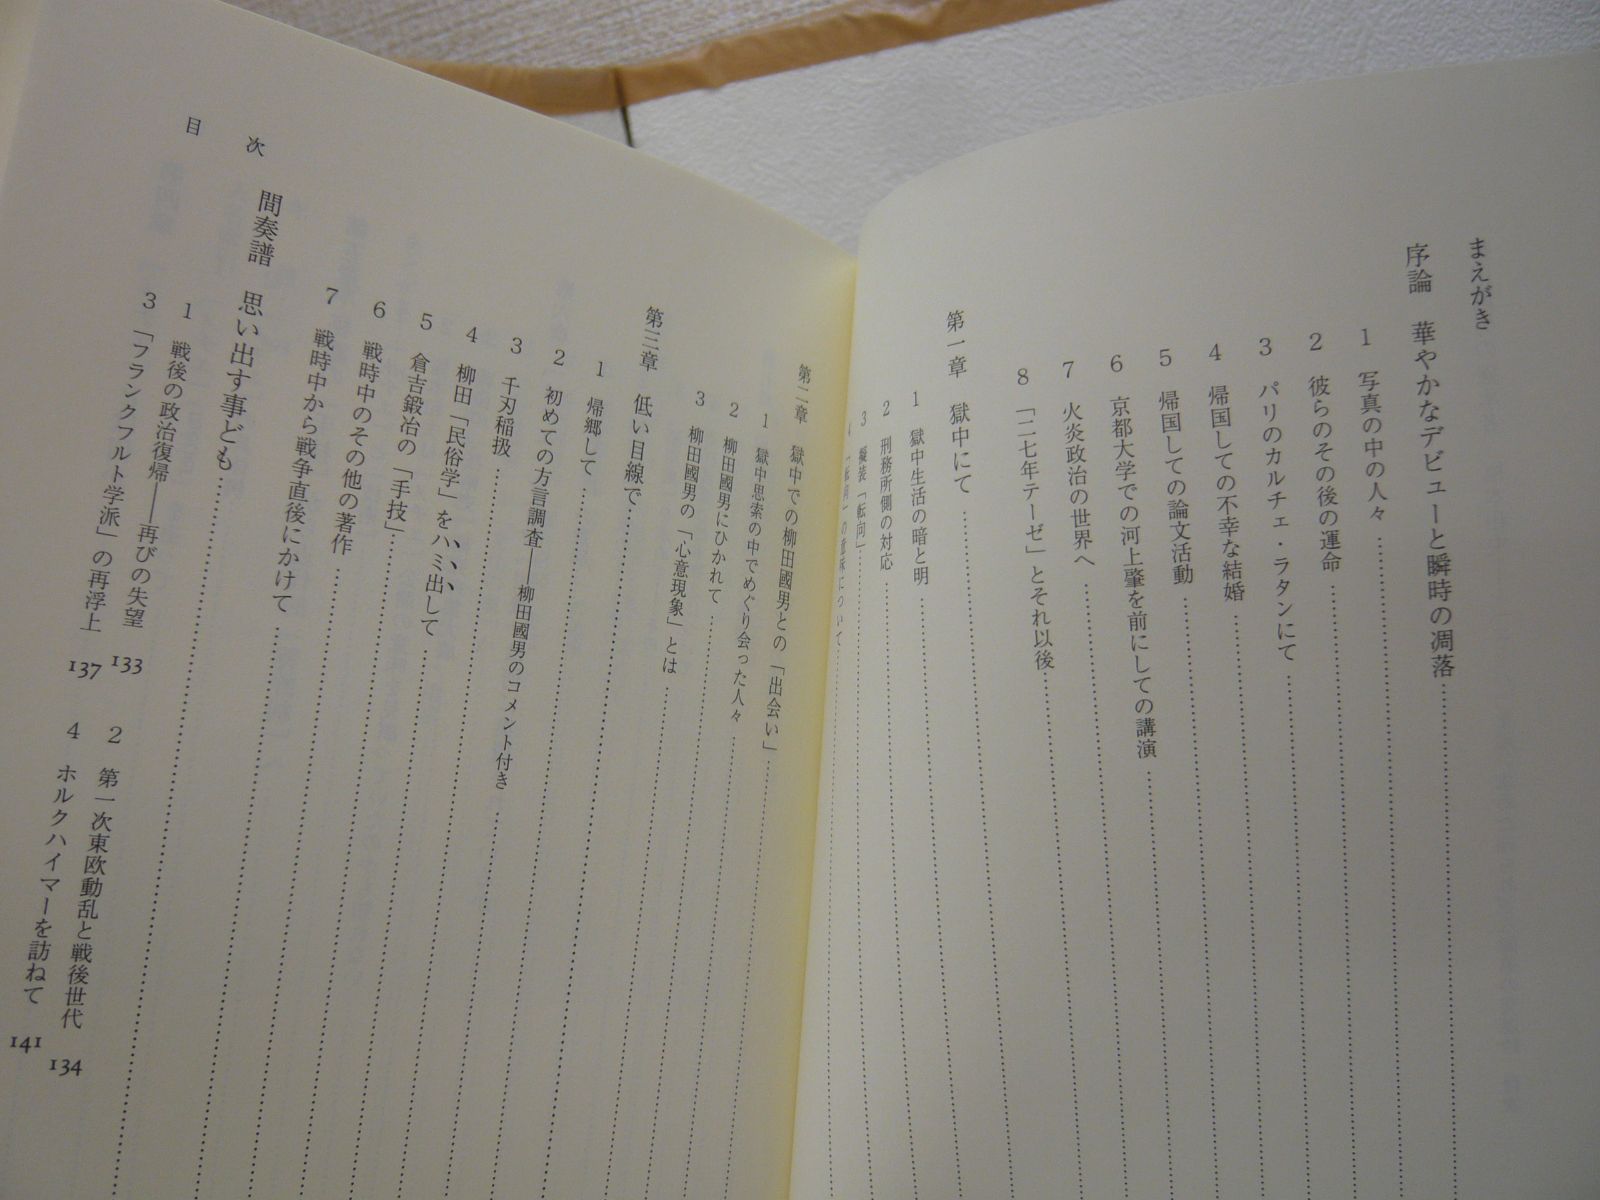 まえがき
序論　華やかなデビューと瞬時の凋落
1　写真の中の人々
2　彼らのその後の運命
3　パリのカルチェ・ラタンにて
4　帰国しての不幸な結婚
5　帰国しての論文活動
6　京都大学での河上肇を前にしての講演
7　火炎政治の世界へ
8　「二七年テーゼ」とそれ以後
第一章　獄中にて
1　獄中生活の暗と明
2　刑務所側の対応
3　擬装「転向」
4　「転向」の意味について
第二章　獄中での柳田國男との「出会い」
1　獄中思索の中でめぐり会った人々
2　柳田國男にひかれて
3　柳田國男の「心意現象」とは
第三章　低い目線で
1　帰郷して
2　初めての方言調査——柳田國男のコメント付き
3　千刃稲扱
4　柳田「民俗学」をハミ出して
5　倉吉鍛冶の「手技」
6　戦時中のその他の著作
7　戦時中から戦争直後にかけて
間奏譜　思い出す事ども
1　戦後の政治復帰——再びの失望　133
2　第一次東欧動乱と戦後世代　134
3　「フランクフルト学派」の再浮上　137
4　ホルクハイマーを訪ねて　141
目　次